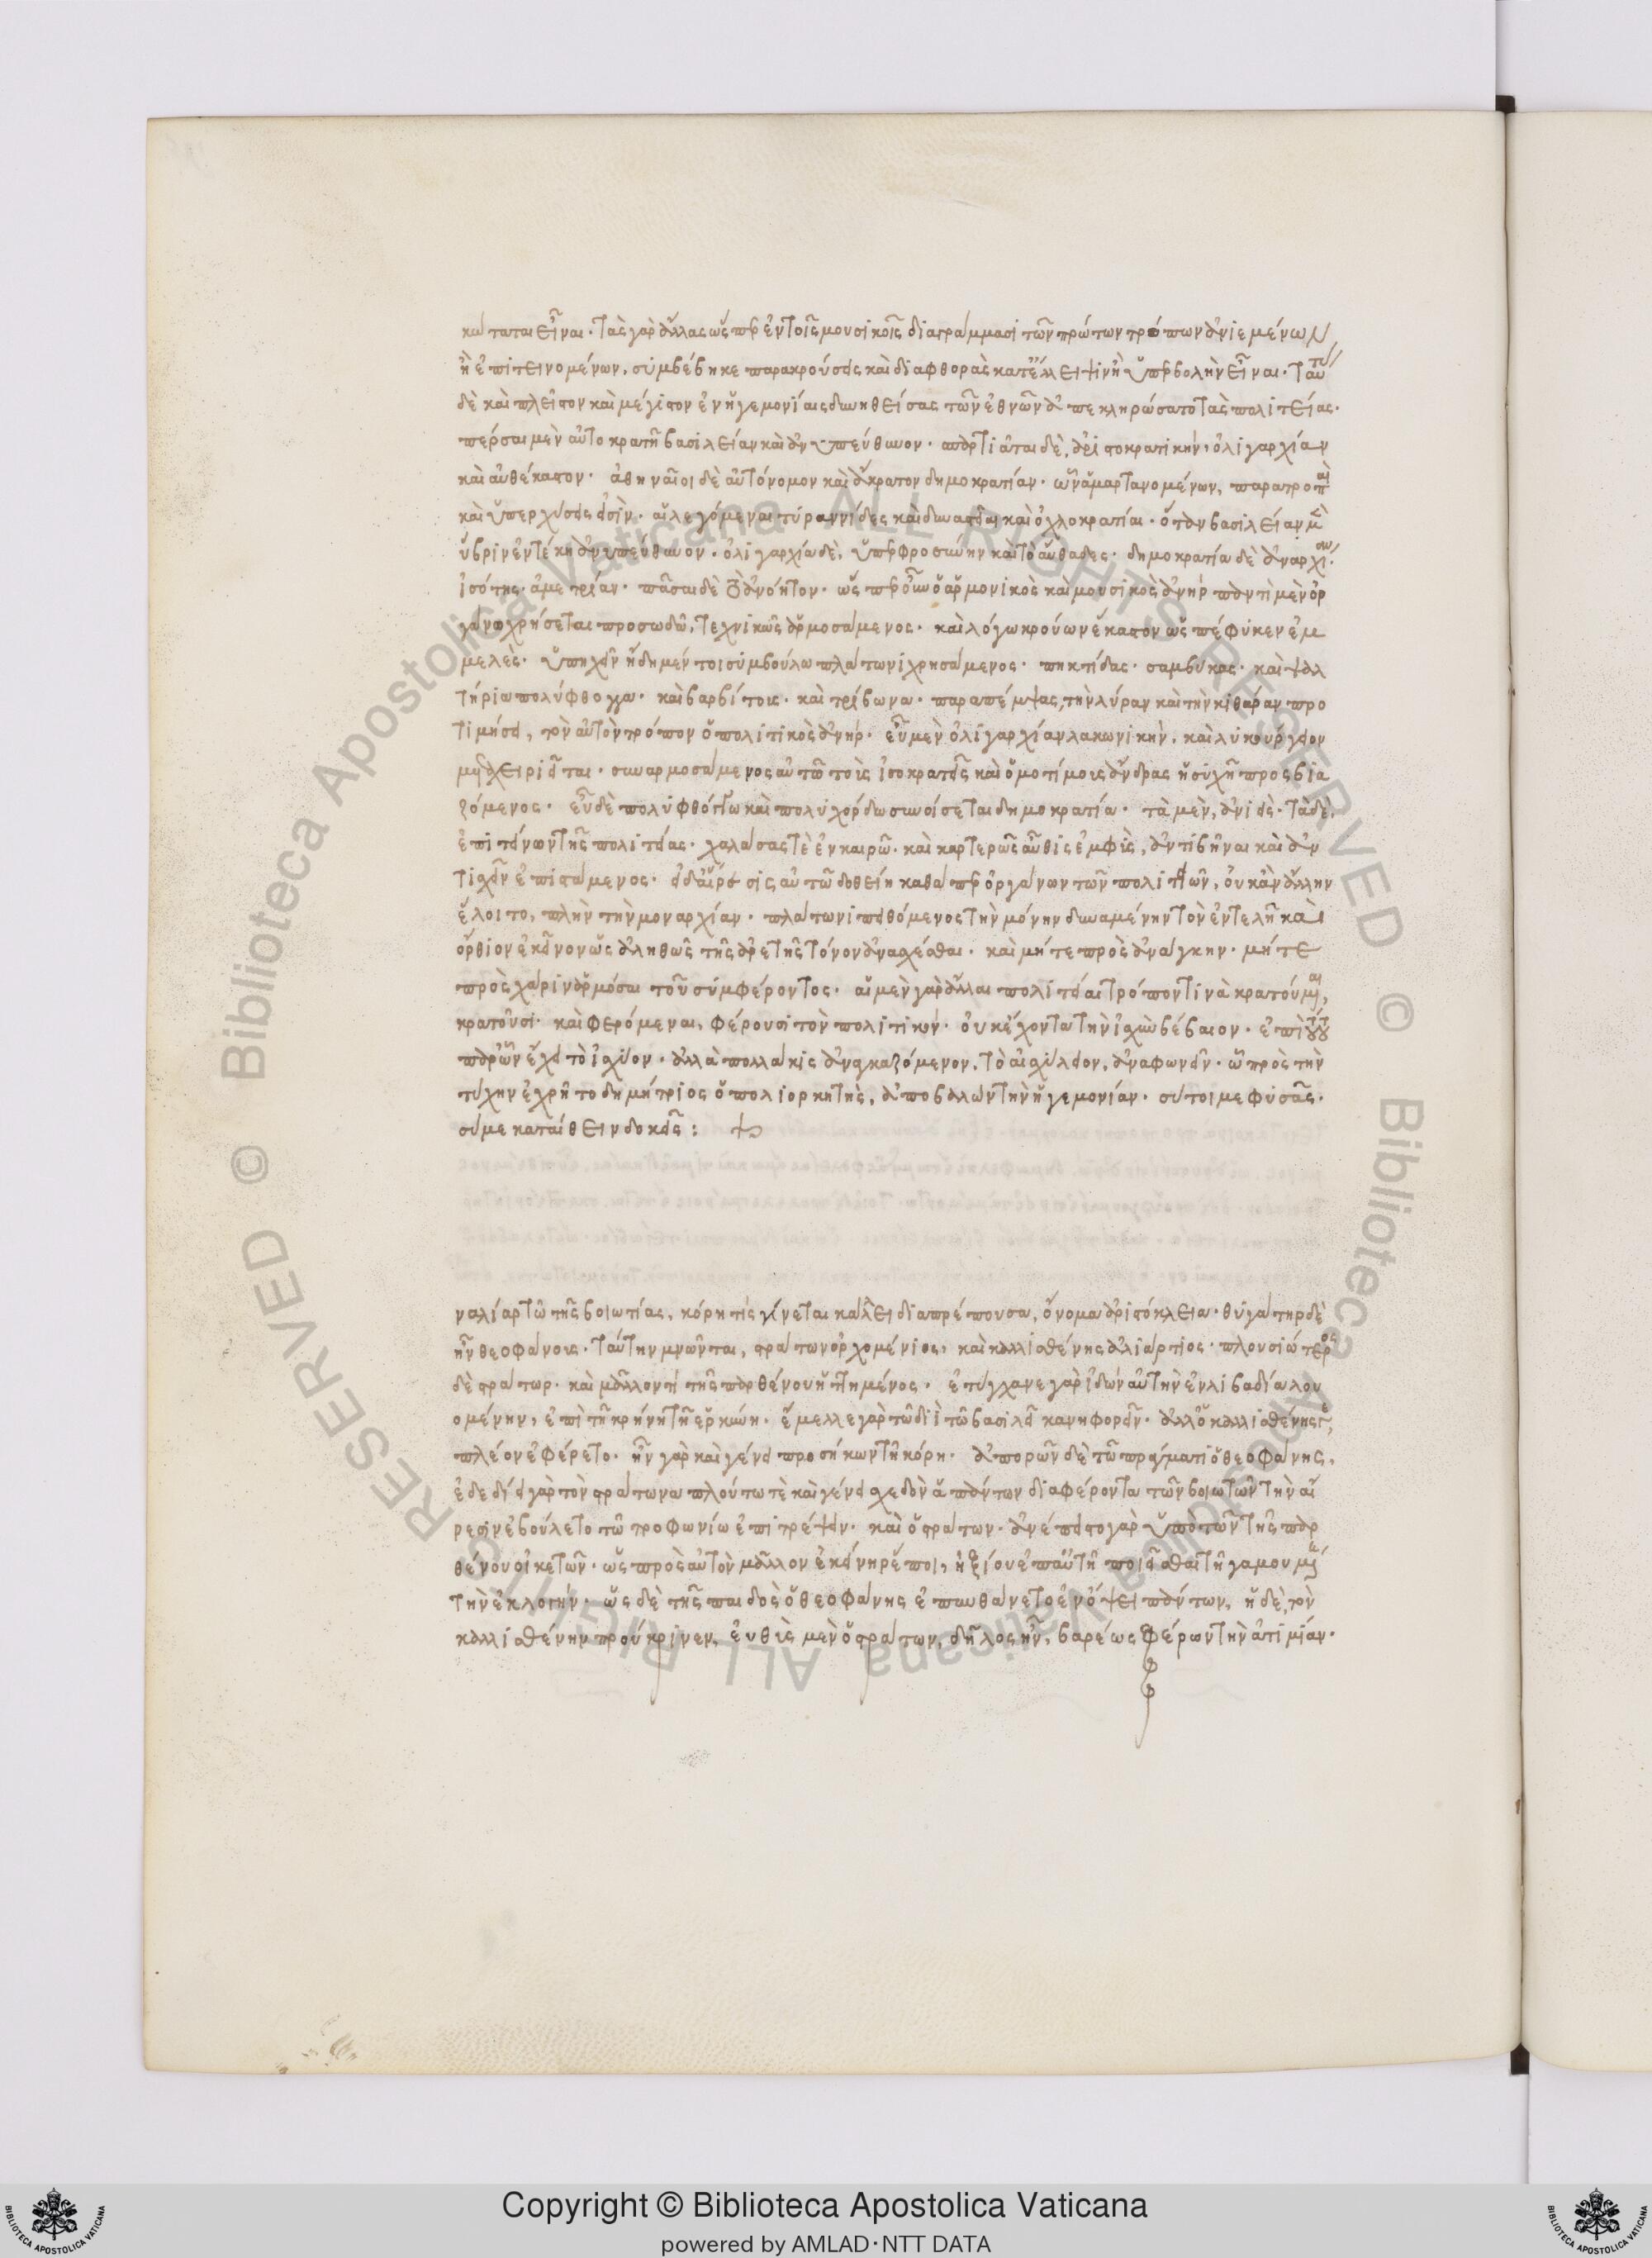 καὶ ταται εἶναι· τὰς γὰρ ἄλλας ὥσπερ ἐν τοῖς μουσικοῖς διαγράμμασι τῶν πρώτων τρόπων ἀνιεμένων
ἢ ἐπιτεινομένων, συμβέβηκε παρακρούσεις καὶ διαφθορὰς κατ' ἔλλειψιν ἢ ὑπερβολὴν εἶναι· ταῦτ
δὲ καὶ πλεῖστον καὶ μέγιστον ἐν ἡγεμονίαις δυνηθείσας τῶν ἐθνῶν ἀπεκληρώσατο τὰς πολιτείας·
πέρσαι μὲν αὐτοκρατῆ βασιλείαν καὶ ἀνυπεύθυνον· σπαρτιᾶται δὲ, ἀριστοκρατικὴν, ὀλιγαρχίαν
καὶ αὐθέκαστον· ἀθηναῖοι δὲ αὐτόνομον καὶ ἄκρατον δημοκρατίαν· ὧν ἁμαρτανομένων, παρατροπαὶ
καὶ ὑπερχύσεις εἰσὶν· αἱ λεγόμεναι τυραννίδες καὶ δυναστεῖαι καὶ ὀχλοκρατίαι· ὅταν βασιλείαν μὲν
ὕβριν ἐντέκῃ ἀνυπεύθυνον· ὀλιγαρχία δὲ, ὑπερφροσύνην καὶ τὸ αὔθαδες· δημοκρατία δὲ ἀναρχίαν·
ἰσότης· ἀμετρίαν· πᾶσαι δὲ τὸ ἀνόητον· ὥσπερ οὖν ὁ ἁρμονικὸς καὶ μουσικὸς ἀνὴρ παντὶ μὲν ὀρ
γάνῳ χρήσεται προσῳδῷ, τεχνικῶς ἁρμοσάμενος· καὶ λόγῳ κρούων ἕκαστον ὡς πέφυκεν ἐμ
μελὲς· ὑπηχεῖν ἤδη μέν τοι συμβούλῳ πλάτωνι χρησάμενος· πηκτίδας· σαμβύκας· καὶ ψαλ
τήρια πολύφθογγα· καὶ βαρβίτους· καὶ τρίβωνα· παραπέμψας, τὴν λύραν καὶ τὴν κιθάραν προ
τιμήσει, τὸν αὐτὸν τρόπον ὁ πολιτικὸς ἀνήρ· εὖ μὲν ὀλιγαρχίαν λακωνικὴν, καὶ λυκούργειον
μεταχειριεῖται· συναρμοσάμενος αὐτῷ τοὺς ἰσοκρατεῖς καὶ ὁμοτίμους ἄνδρας ἡσυχῆ προσβια
ζόμενος· εὖ δὲ πολυφθόγγῳ καὶ πολυχόρδῳ συνοίσεται δημοκρατίᾳ· τὰ μὲν, ἀνιεὶς· τὰ δὲ,
ἐπιτείνων τῆς πολιτείας· χαλάσας τὲ ἐν καιρῷ· καὶ καρτερῶς αὖθις ἐμφὺς, ἀντιβῆναι καὶ ἀν
τισχεῖν ἐπιστάμενος· εἰ δ' αἵρεσις αὐτῷ δοθείη καθάπερ ὀργάνων τῶν πολιτειῶν, οὐκ ἂν ἄλλην
ἕλοιτο, πλὴν τὴν μοναρχίαν· πλάτωνι πειθόμενος τὴν μόνην δυναμένην τὸν ἐντελῆ καὶ
ὄρθιον ἐκεῖνον ὡς ἀληθῶς τῆς ἀρετῆς τόνον ἀνασχέσθαι· καὶ μήτε πρὸς ἀνάγκην· μήτε
πρὸς χάριν ἁρμόσαι τοῦ συμφέροντος· αἱ μὲν γὰρ ἄλλαι πολιτεῖαι τρόπον τινὰ κρατούμεναι,
κρατοῦσι· καὶ φερόμεναι, φέρουσι τὸν πολιτικόν· οὐκ ἔχοντα τὴν ἰσχὺν βέβαιον· ἐπὶ τούτους
παρ' ὧν ἔχει τὸ ἰσχύον· ἀλλὰ πολλάκις ἀναγκαζόμενον, τὸ αἰσχύλειον, ἀναφωνεῖν· ᾧ πρὸς τὴν
τύχην ἐχρῆτο δημήτριος ὁ πολιορκητὴς, ἀποβαλὼν τὴν ἡγεμονίαν· σύ τοι με φύσᾶς·
σύ με καταίθειν δοκεῖς:
ν ἁλιάρτῳ τῆς βοιωτίας, κόρη τίς γίνεται κάλλει διαπρέπουσα, ὄνομα ἀριστόκλεια· θυγάτηρ δὲ
ἦν θεοφάνους· ταύτην μνῶνται, στράτων ὀρχομένιος, καὶ καλλισθένης ἁλιάρτιος· πλουσιώτερος
δὲ στράτων· καὶ μᾶλλόν τι τῆς παρθένου ἡττημένος· ἐτύγχανε γὰρ ἰδὼν αὐτὴν ἐν λιβαδίᾳ λου
ομένην, ἐπὶ τῇ κρήνῃ τῇ ἑρκύνῃ· ἔμελλε γὰρ τῷ διὶ τῷ βασιλεῖ κανηφορεῖν· ἀλλ' ὁ καλλισθένης γε
πλέον ἐφέρετο· ἦν γὰρ καὶ γένει προσήκων τῇ κόρῃ· ἀπορῶν δὲ τῷ πράγματι ὁ θεοφάνης,
ἐδεδίει γὰρ τὸν στράτωνα πλούτῳ τὲ καὶ γένει σχεδὸν ἁπάντων διαφέροντα τῶν βοιωτῶν τὴν αἵ
ρεσιν ἐβούλετο τῷ τροφωνίῳ ἐπιτρέψειν· καὶ ὁ στράτων· ἀνέπειστο γὰρ ὑπὸ τῶν τῆς παρ
θένου οἰκετῶν· ὡς πρὸς αὐτὸν μᾶλλον ἐκείνη ῥέποι, ἠξίου ἐπ' αὐτῇ ποιεῖσθαι τῇ γαμουμένῃ
τὴν ἐκλογήν· ὡς δὲ τῆς παιδὸς ὁ θεοφάνης ἐπυνθάνετο ἐν ὄψει πάντων, ἡ δὲ, τὸν
καλλισθένην προύκρινεν, εὐθὺς μὲν ὁ στράτων, δῆλος ἦν, βαρέως φέρων τὴν ἀτιμίαν·
Copyright © Biblioteca Apostolica Vaticana
powered by AMLAD·NTT DATA